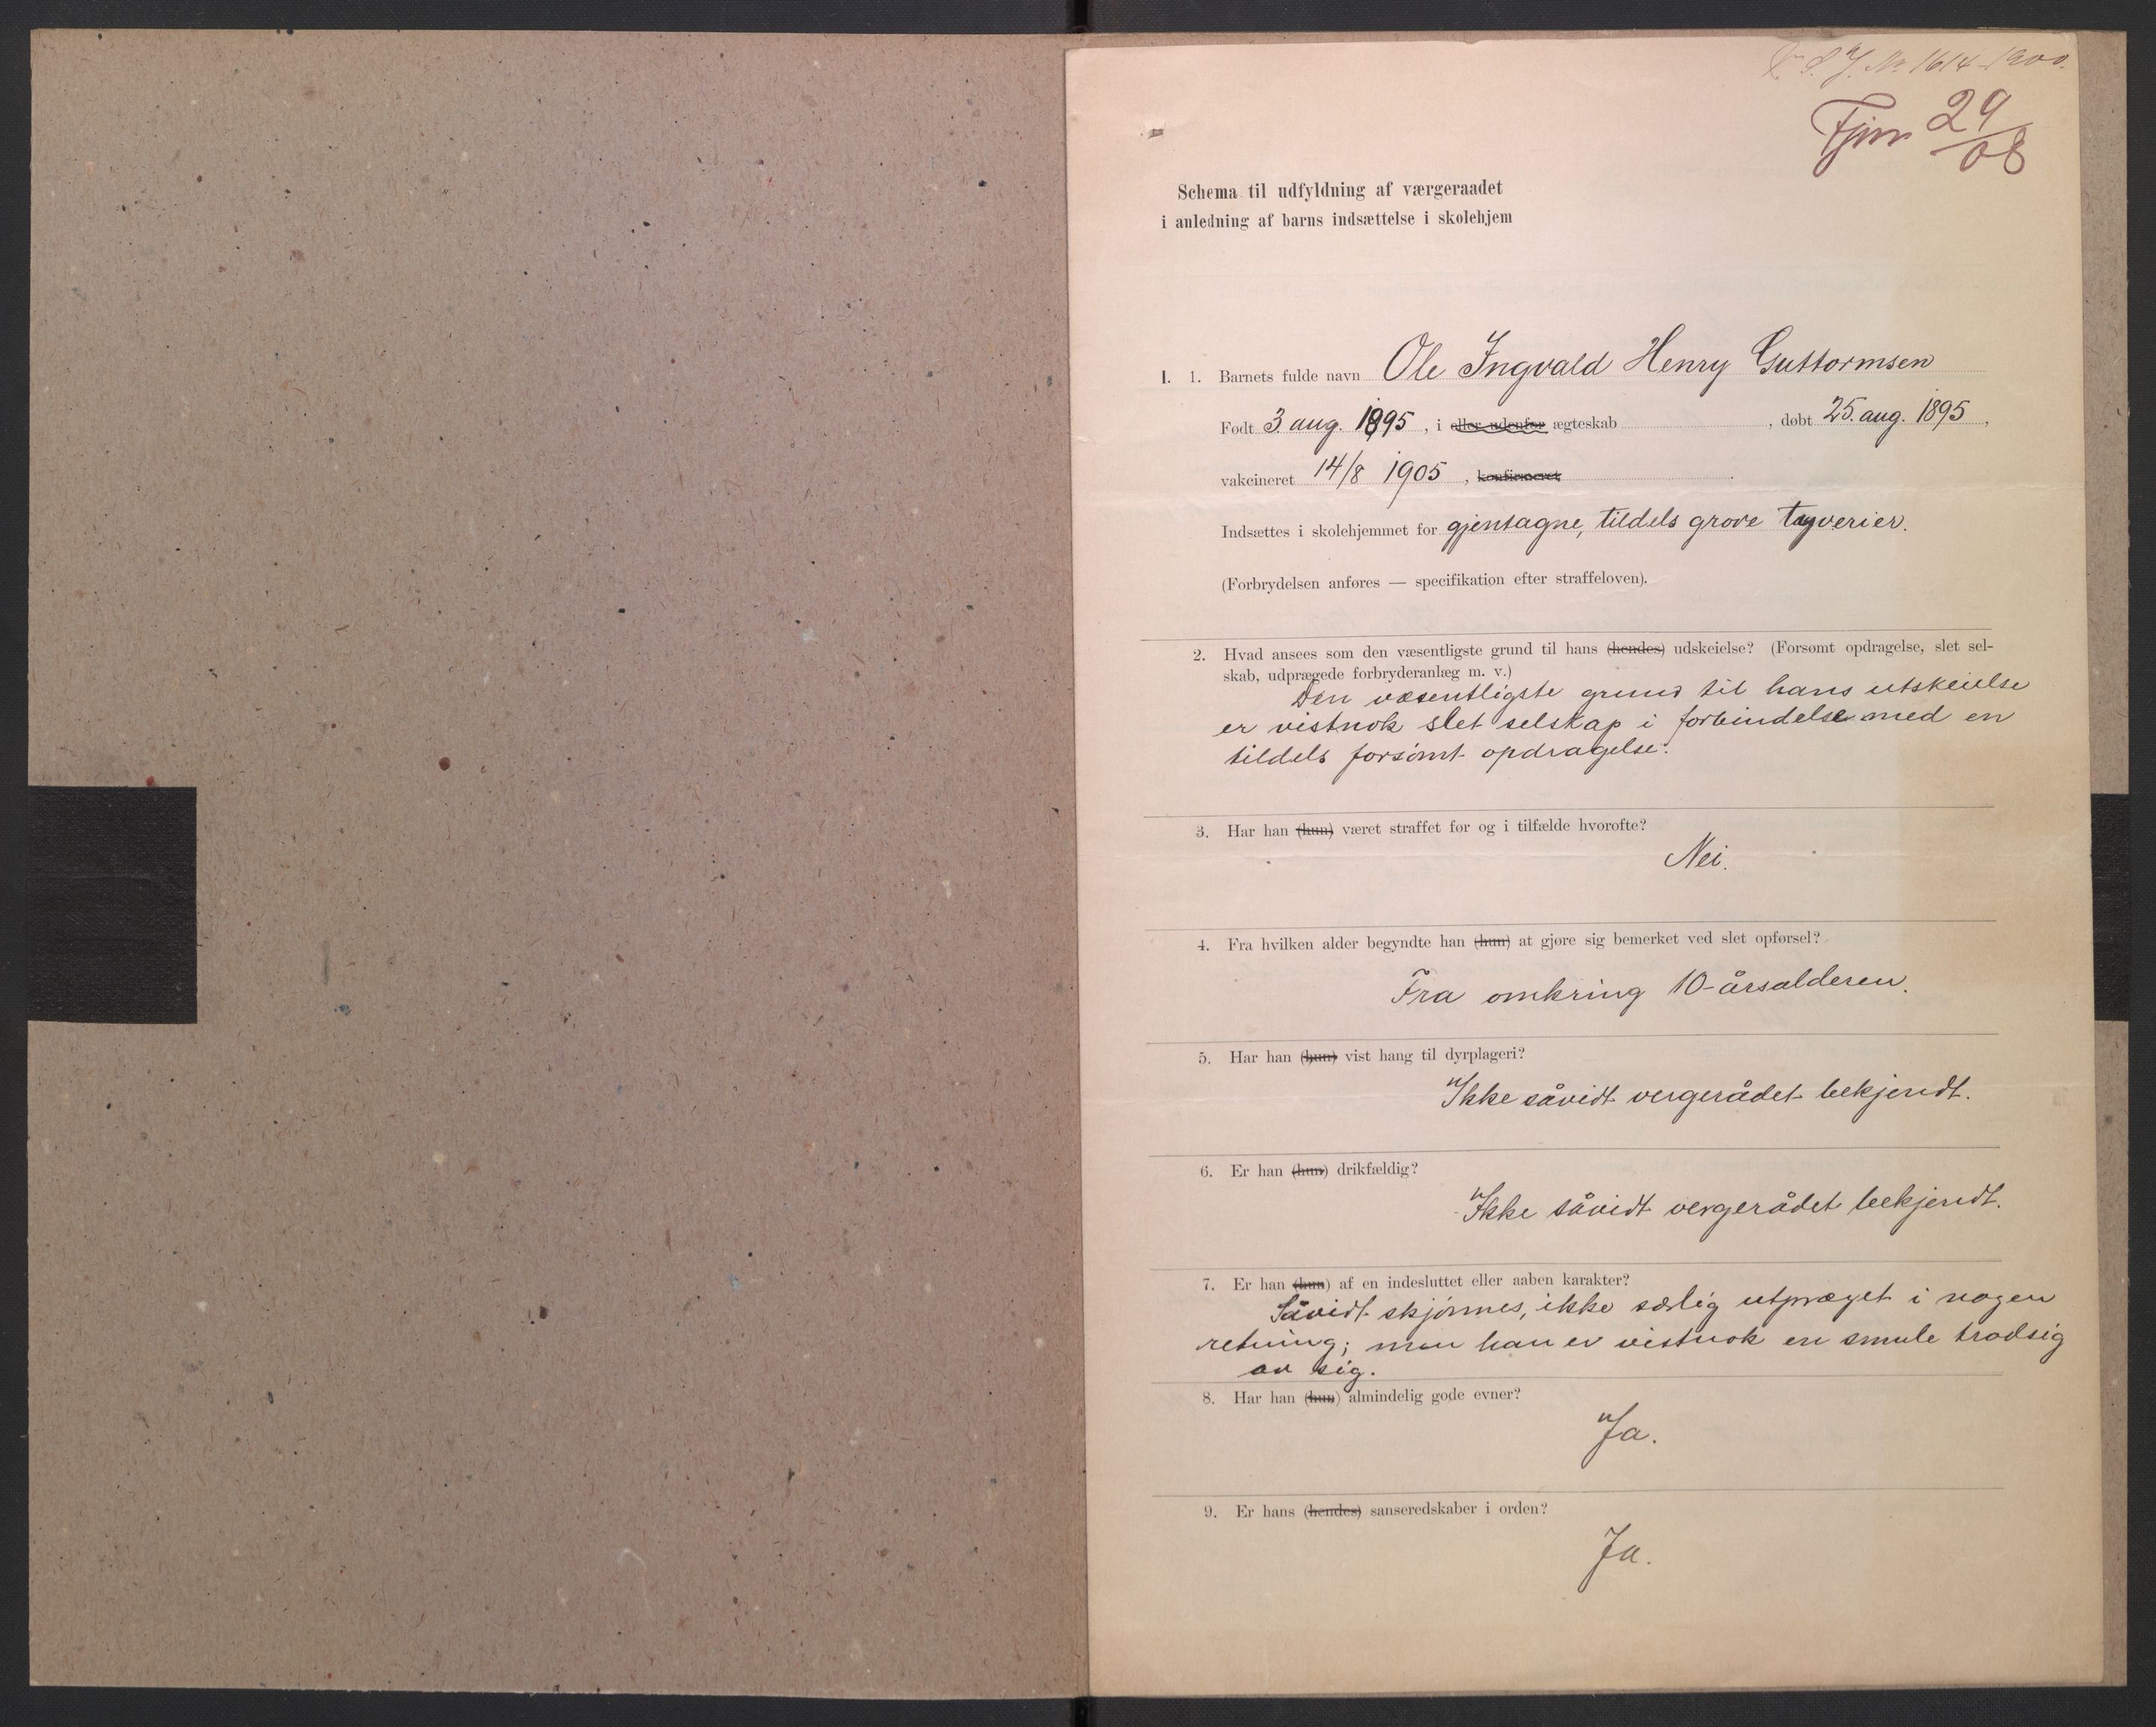 No 1614-1900.
Fjnr 29/08
Schema til udfyldning af værgeraadet
i anledning af barns indsættelse i skolehjem
I. 1. Barnets fulde navn Ole Ingvald Henry Guttormsen
Født 3. aug. 1895, i eller udenfor ægteskab , døbt 25. aug. 1895,
vakcineret 14/8 1905, konfirmeret
Indsættes i skolehjemmet for gjentagne, tildels grove tyverier.
(Forbrydelsen anføres — specifikation efter straffeloven).
2. Hvad ansees som den væsentligste grund til hans (hendes) udskeielse? (Forsømt opdragelse, slet sel-
skab, udprægede forbryderanlæg m. v.)
Den væsentligste grund til hans utskeielse
er vistnok slet selskap i forbindelse med en
tildels forsømt opdragelse.
3. Har han (hun) været straffet før og i tilfælde hvorofte?
Nei.
4. Fra hvilken alder begyndte han (hun) at gjøre sig bemerket ved slet opførsel?
Fra omkring 10-årsalderen.
5. Har han (hun) vist hang til dyrplageri?
Ikke såvidt vergerådet bekjendt.
6. Er han (hun) drikfældig?
Ikke såvidt vergerådet bekjendt.
7. Er han (hun) af en indesluttet eller aaben karakter?
Såvidt skjønnes, ikke særlig utpræget i nogen
retning; men han er vistnok en smule trodsig
av sig.
8. Har han (hun) almindelig gode evner?
Ja.
9. Er hans (hendes) sanseredskaber i orden?
Ja.